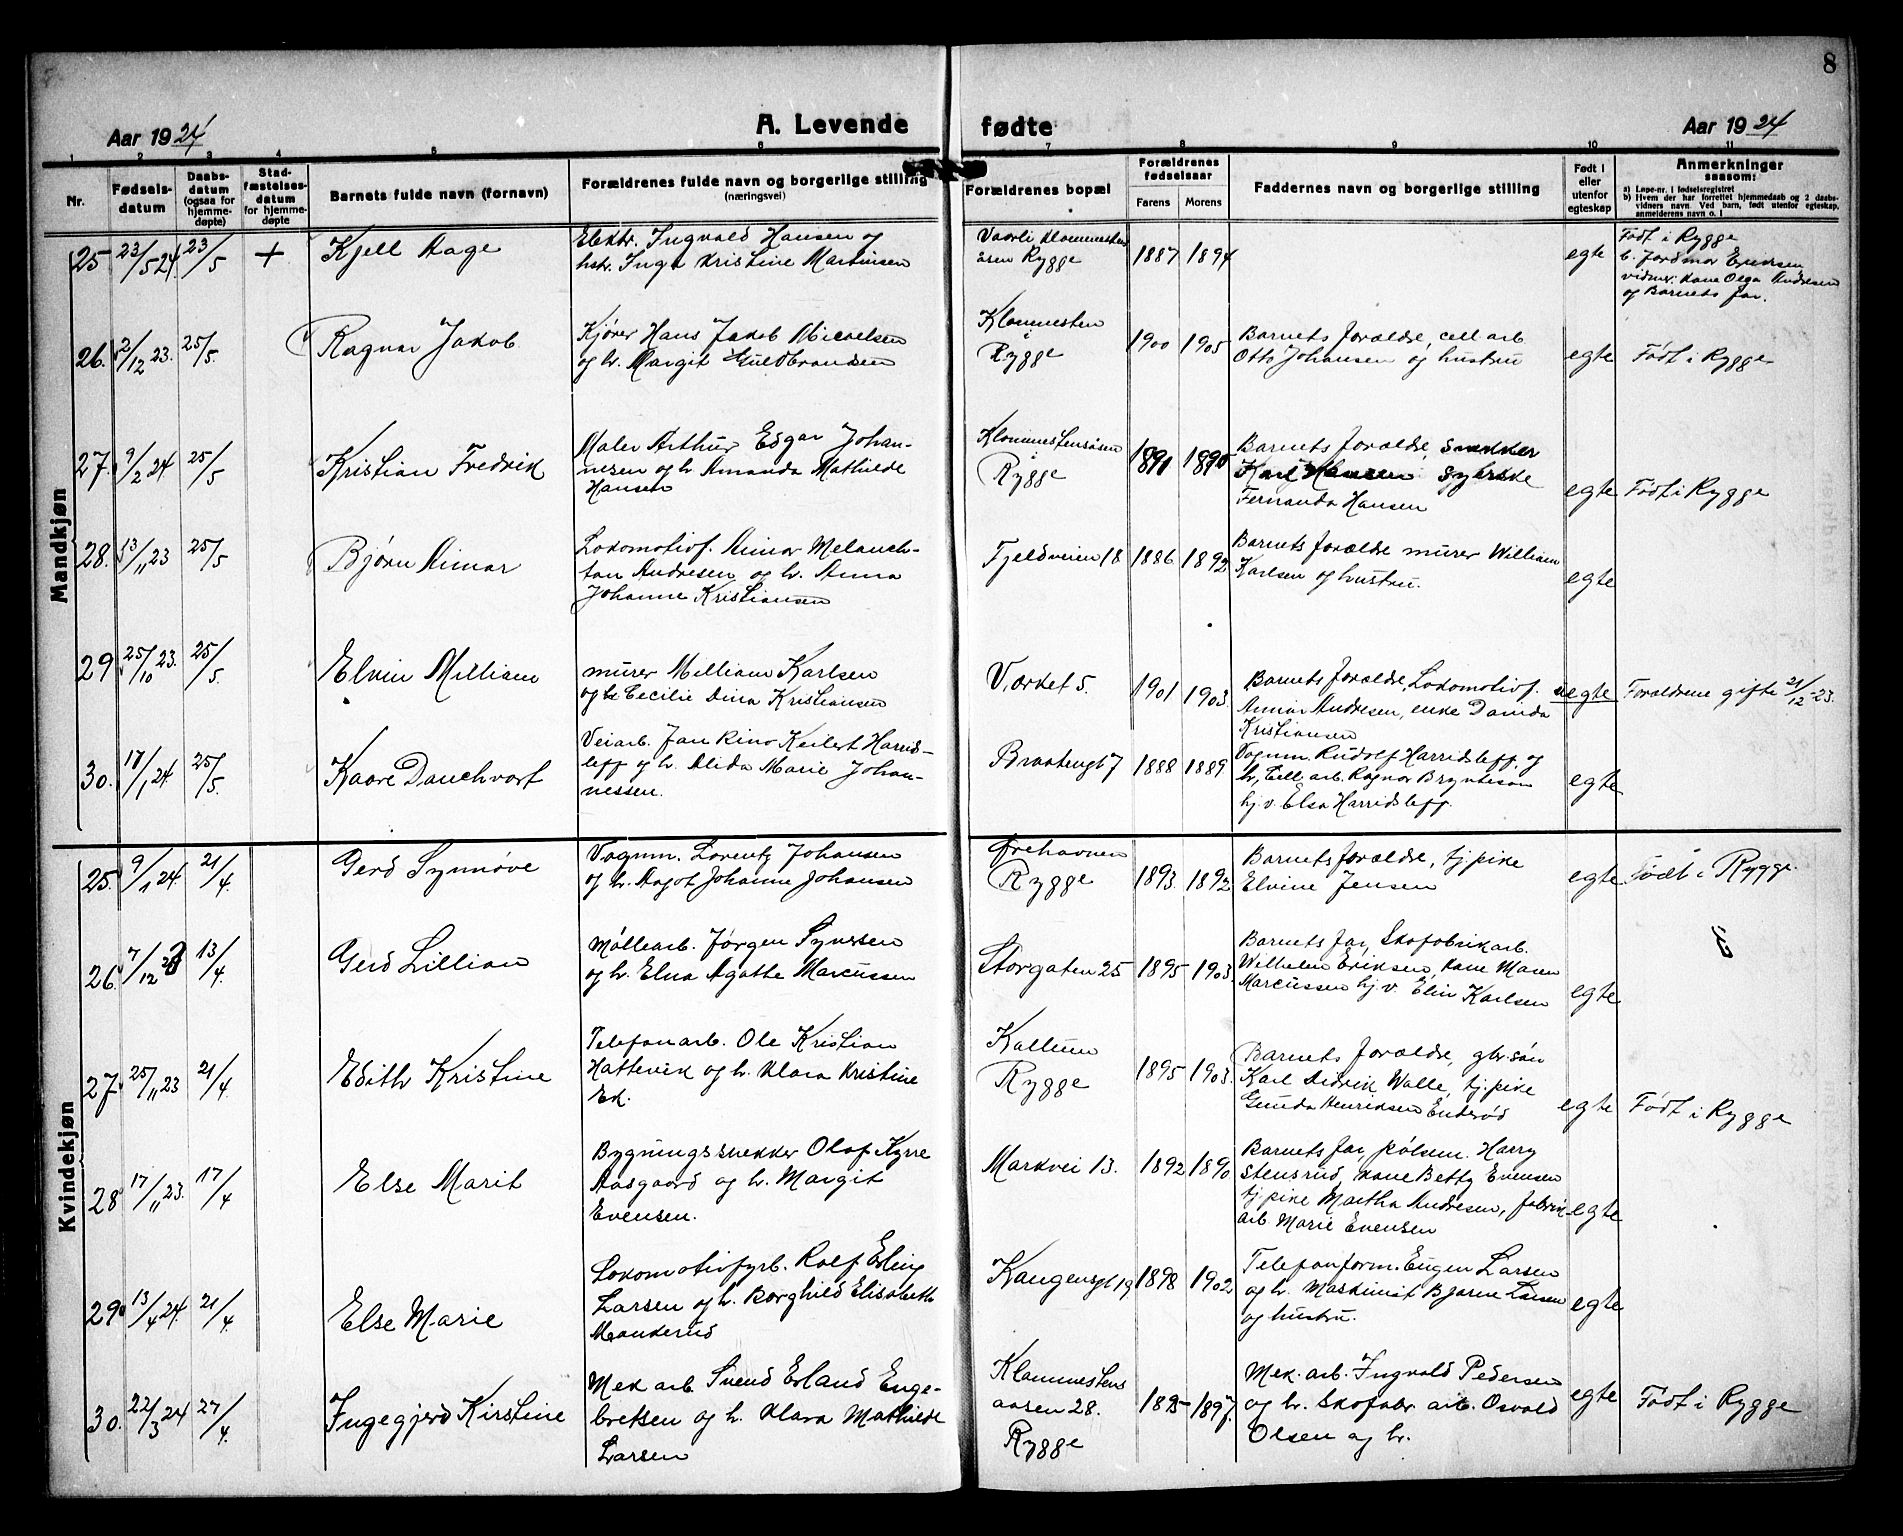 8
Aar 1924
A. Levende
fødte
Aar 1924
1 2 3 4 5 6 7 8 9 10 11
Nr.
Fødsels-
datum
Daabs-
datum
(ogsaa for
hjemme-
døpte)
Stad-
fæstelses-
datum
for hjemme-
døpte
Barnets fulde navn (fornavn)
Forældrenes fulde navn og borgerlige stilling
(næringsvei)
Forældrenes bopæl
Forældrenes
fødselsaar
Farens Morens
Faddernes navn og borgerlige stilling
Født i
eller
utenfor
egteskap
Anmerkninger
saasom:
a) Løpe-nr. i fødselsregistret
b) Hvem der har forrettet hjemmedaab og 2 daabs-
vidners navn. Ved barn, født utenfor egteskap,
anmelderens navn o. l
Mandkjøn
25 23/5 24. 23/5 + Kjell Aage
Elektr. Ingvald Hansen og
hstr. Inga Kristine Martinsen
Vaarli Klommesten
åsen Rygge
1887 1894
egte
Født i Rygge
b. Jordmor Eriksen
vidner: kone Olga Andresen
og Barnets far.
26. 2/12 23. 25/5. Ragnar Jakob
Kjører Hans Jakob Micaelsen
og h. Margit Guldbrandsen
Klommesten
i
Rygge
1900 1905
Barnets forældre, cell arb
Otto Johansen og hustru
egte Født i Rygge
27. 9/2 24 25/5 Kristian Fredrik
Maler Arthur Edgar Johan-
nesen og h Amanda Mathilde
Hansen
Klommestensåsen
Rygge
1891 1890
Barnets forældre, snekker
Karl Hansen syerske
Fernanda Hansen
egte Født i Rygge
28. 13/11 23 25/5 Bjørn Aimar
Lokomotivf. Aimar Melanch-
ton Andresen og h. Anna
Johanne Kristiansen
Fjeldveien 18 1886 1892
Barnets forældre murer William
Karlsen og hustru.
egte
29 25/10 23. 25/5. Elvin William
murer William Karlsen
og h Cecilie Dina Kristiansen
Værket 5. 1901 1903.
Barnets forældre, Lokomotivf.
Aimar Andresen, enke Danida
Kristiansen
uegte Forældrene gifte 21/12-23.
30. 18/1 24 25/5. Kaare Danchvart
Veiarb. Jan Rino Keilert Harrids-
leff og h. Alida Marie Johan-
nessen.
Braatengt 7 1888 1889
Vognm. Rudolf Harridsleff, og
h, Cell. arb. Ragnar Brynteson
hj. v. Elsa Harridsleff.
egte
Kvindekjøn
25. 9/1 24. 21/4. Gerd Synnøve
Vognm. Lorentz Johansen
og h. Aagot Johanne Johansen
Ørehavnen
Rygge
1893. 1892
Barnets forældre, tj. pike
Elvine Jensen
egte Født i Rygge.
26. 7/12 23 13/4. Gerd Lillian
Møllearb. Jørgen Syversen
og h. Elna Agathe Marcussen
Storgaten 25 1895 1903.
Barnets far, Skofabrikarb.
Wilhelm Eriksen, kone Maren
Marcussen hj. v. Elin Karlsen
egte
27 25/11 23 21/4 Edith Kristine
Telefonarb. Ole Kristian
Hattevik og h. Klara Kristine
Ek.
Kallum
Rygge
1895 1903.
Barnets forældre, gbr. søn
Karl Didrik Walle, tj. pike
Gunda Henriksen Enderød
egte Født i Rygge
28 17/11 23. 17/4 Else Marit
Bygningssnekker Olaf Kyrre
Aasgaard og h. Margit
Evensen.
Markvei 13. 1892 1890.
Barnets far, pølsem. Harry
Stensrud, kone Betty Evensen
tj. pike Martha Andresen, fabrik-
arb Marie Evensen
egte
29 13/4 24. 21/4. Else Marie
Lokomotivfyrb. Rolf Erling
Larsen og h. Borghild Elisabeth
Manderud
Kongensgt 19 1898 1902
Telefonform. Eugen Larsen
og h. Maskinist Bjarne Larsen
og hustru.
egte
30. 22/3 24 27/4. Ingegjerd Kirstine
Mek arb Svend Erland Enge-
bretsen og h. Klara Mathilde
Larsen
Klommestens
aasen 28.
Rygge
1895 1897.
Mek. arb. Ingvald Pedersen
og h. Skofabr. arb. Osvald
Olsen og h.
egte Født i Rygge